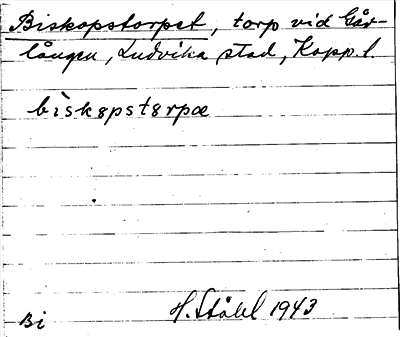 Biskopstorpet, torp vid Går-
lången, Ludvika stad, Kopp. l.
bìskɵpstɵrpæ
H. Ståhl 1943
Bi